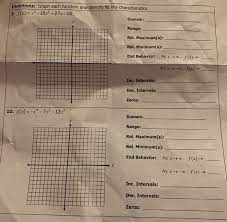 Directions: Graph each function and identify its key characteristics.
9. f(x) = x³ − 10x² + 27x − 18
Domain:
Range:
Rel. Maximum(s):
Rel. Minimum(s):
End Behavior: As x → ∞, f(x) →
As x → -∞, f(x) →
Inc. Intervals:
Dec. Intervals:
Zeros:
10. f(x) = -x⁴ − 7x³ − 12x²
Domain:
Range:
Rel. Maximum(s):
Rel. Minimum(s):
End Behavior: As x → ∞, f(x) →
As x → -∞, f(x) →
Inc. Intervals:
Dec. Intervals:
Zeros: